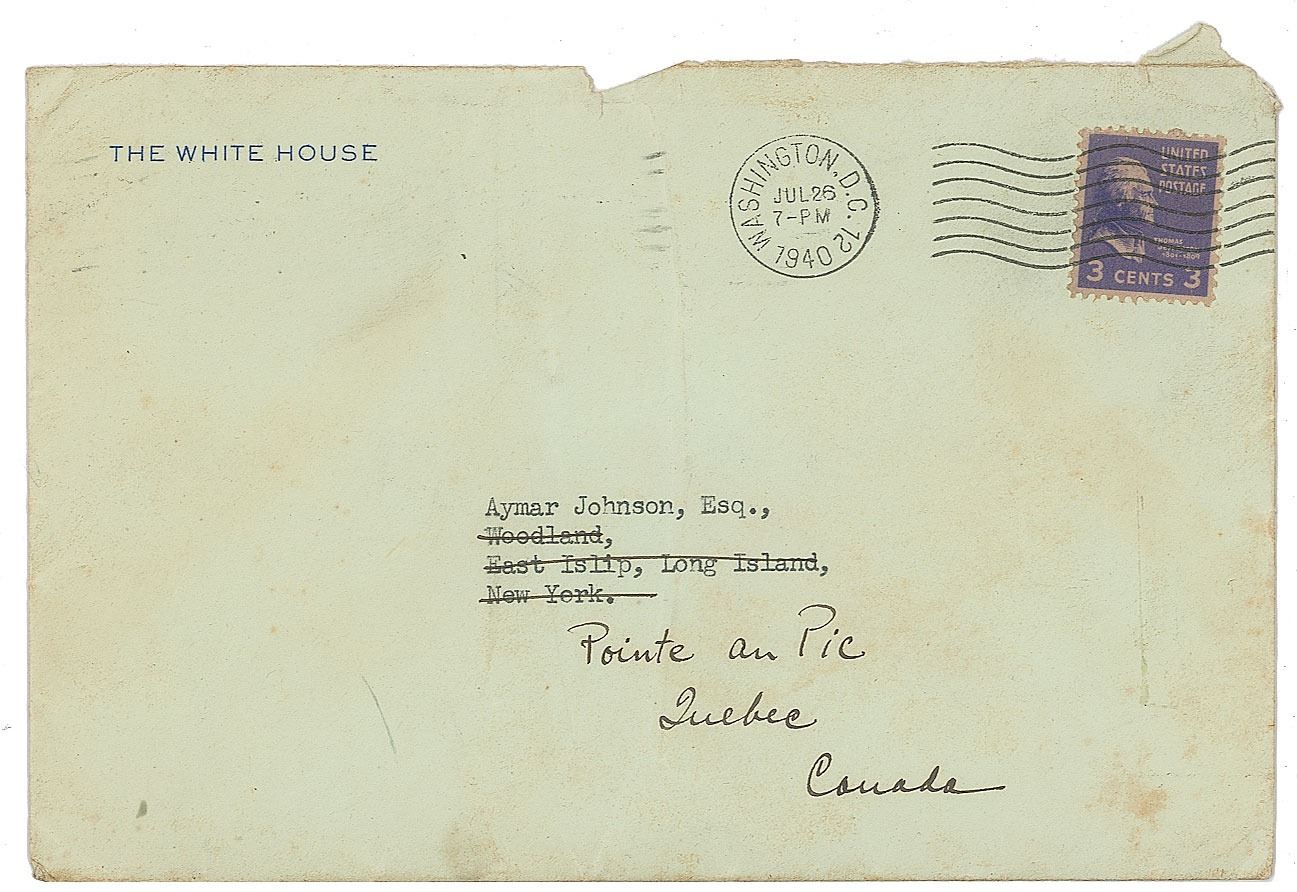 THE WHITE HOUSE
WASHINGTON, D.C. 12
JUL 26
7-PM
1940
UNITED
STATES
POSTAGE
THOMAS
1801-1809
3 CENTS 3
Aymar Johnson, Esq.,
Woodland,
East Islip, Long Island,
New York.
Pointe au Pic
Quebec
Canada